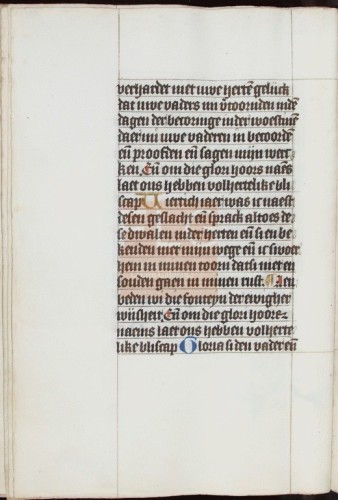 verhardet niet uwe hertē gelijck
dat uwe vaders mi v̄toornden indē
dagen der becoringe inder woestinen
daer mi uwe vaderen in becoordē
eñ proofden eñ sagen mijn wer
ken. Eñ om die glori hoors naēs
laet ons hebben volhertelike bli
scap Viertich iaer was ic naest
desen geslacht eñ sprack altoes de
se dwalen inder herten eñ si en be
kenden niet mijn wege eñ ic swoer
hem in minen toorn dat si niet en
souden gaen in minen rust. Aen
beden wi die fonteyn der ewigher
wijsheit. Eñ om die glori hoors
naems laet ons hebben volherte
like bliscap Gloria si den vader eñ